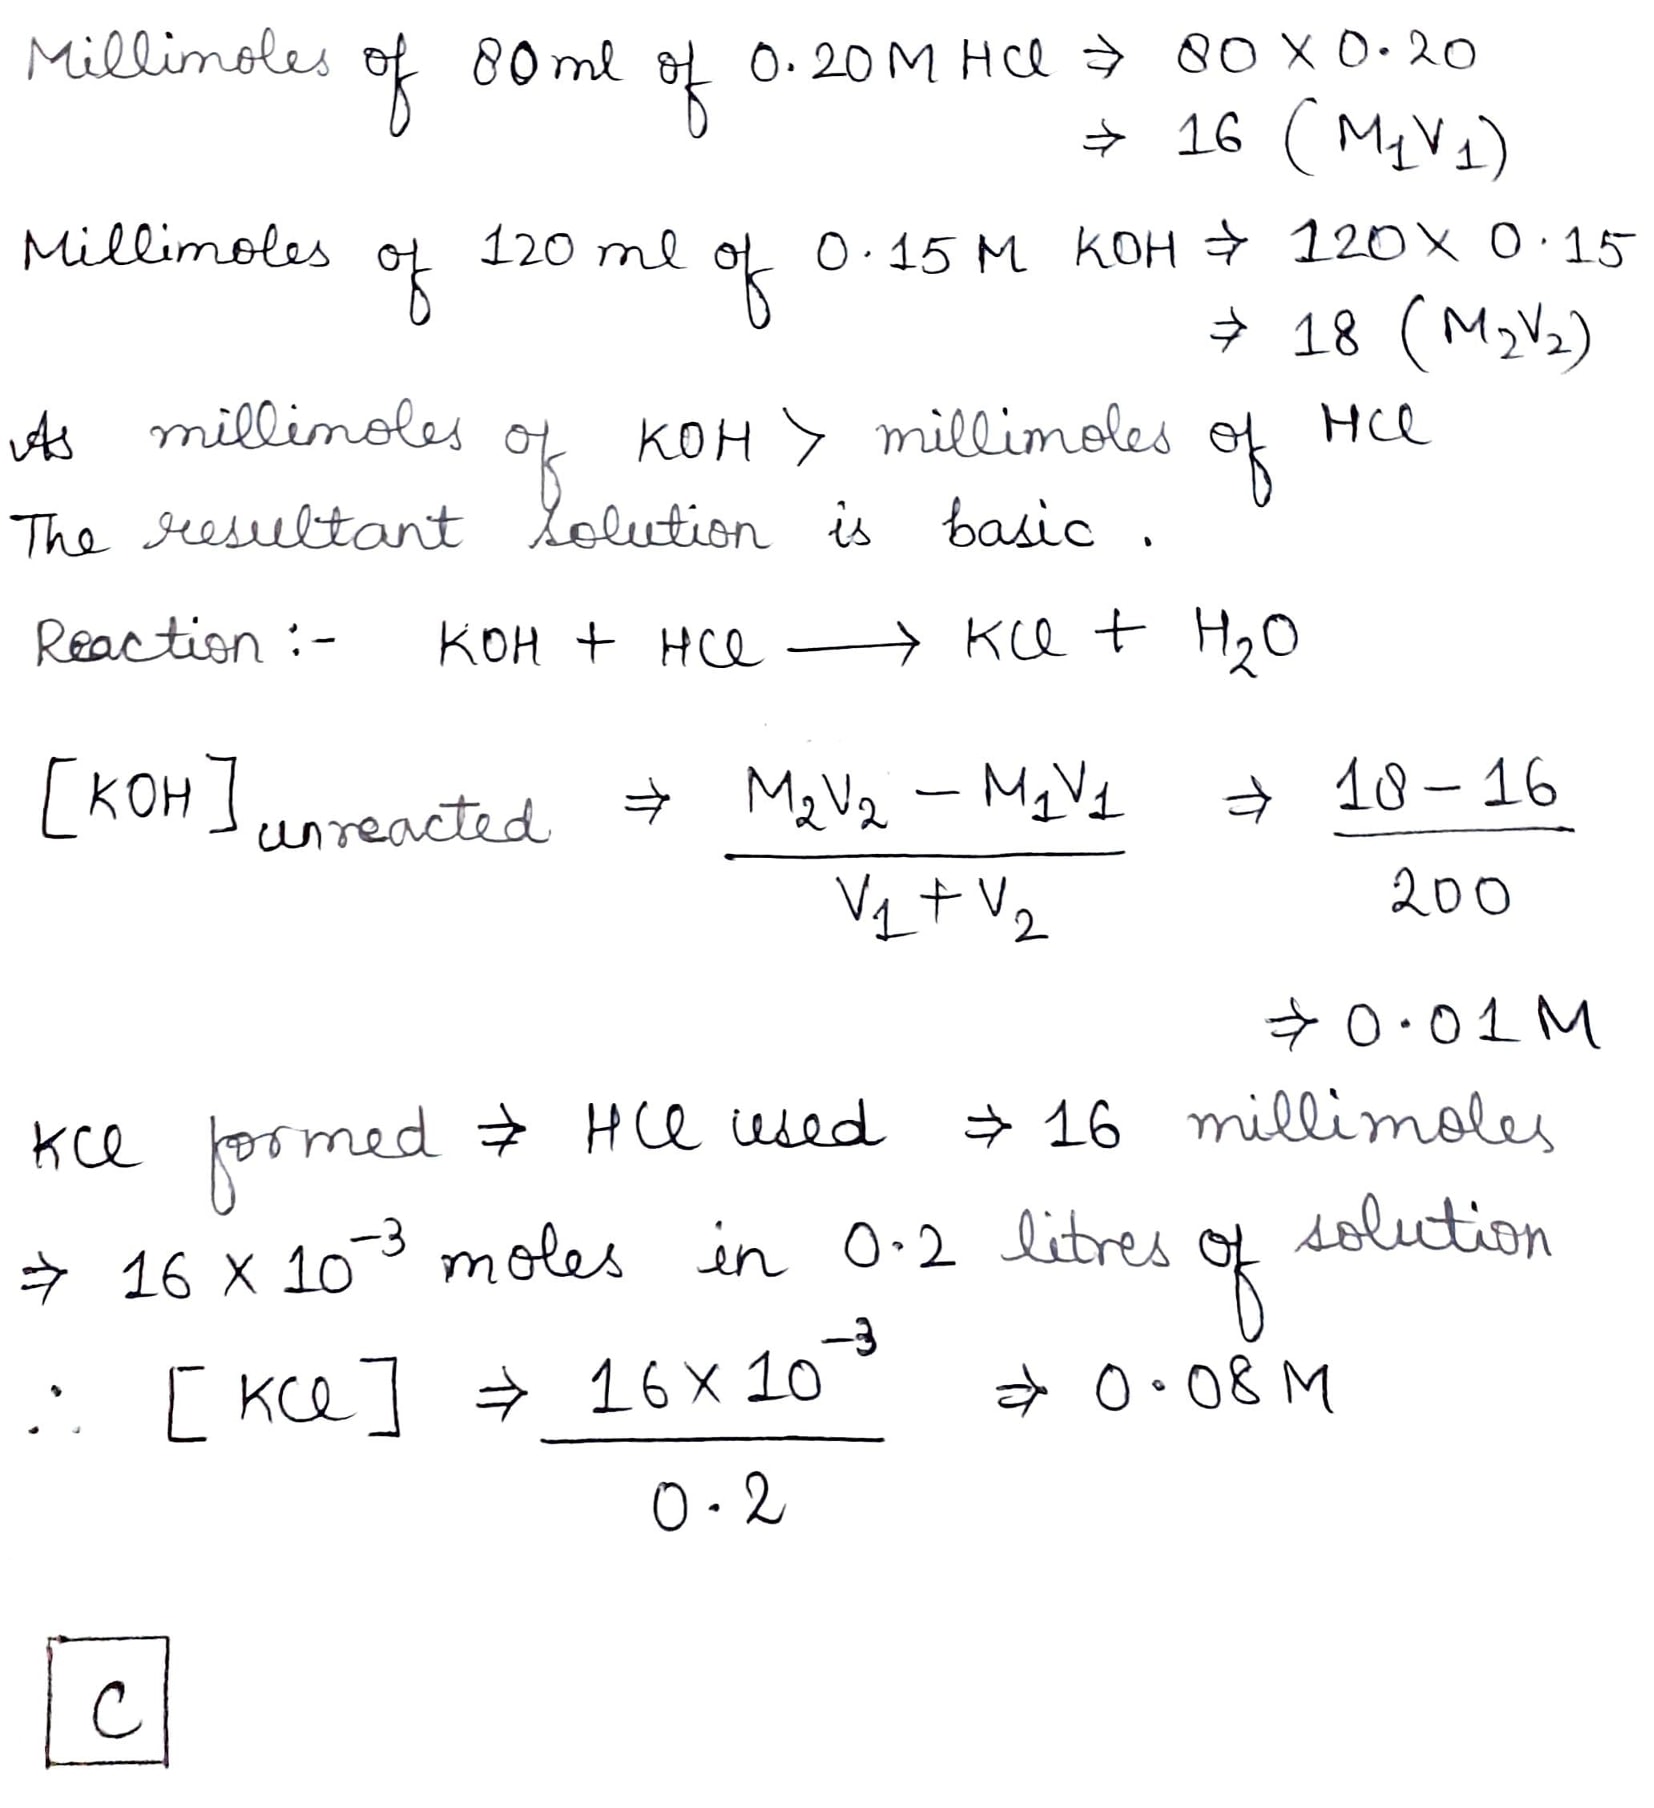 Millimoles of 80 ml of 0.20 M HCl ⇒ 80 X 0.20
⇒ 16 (M₁V₁)
Millimoles of 120 ml of 0.15 M KOH ⇒ 120 X 0.15
⇒ 18 (M₂V₂)
As millimoles of KOH > millimoles of HCl
The resultant solution is basic.
Reaction :- KOH + HCl ⟶ KCl + H₂O
[KOH] unreacted ⇒ M₂V₂ - M₁V₁ ⇒ 18 - 16
V₁ + V₂ 200
⇒ 0.01 M
KCl formed ⇒ HCl used ⇒ 16 millimoles
⇒ 16 X 10⁻³ moles in 0.2 litres of solution
∴ [KCl] ⇒ 16 X 10⁻³ ⇒ 0.08 M
0.2
C